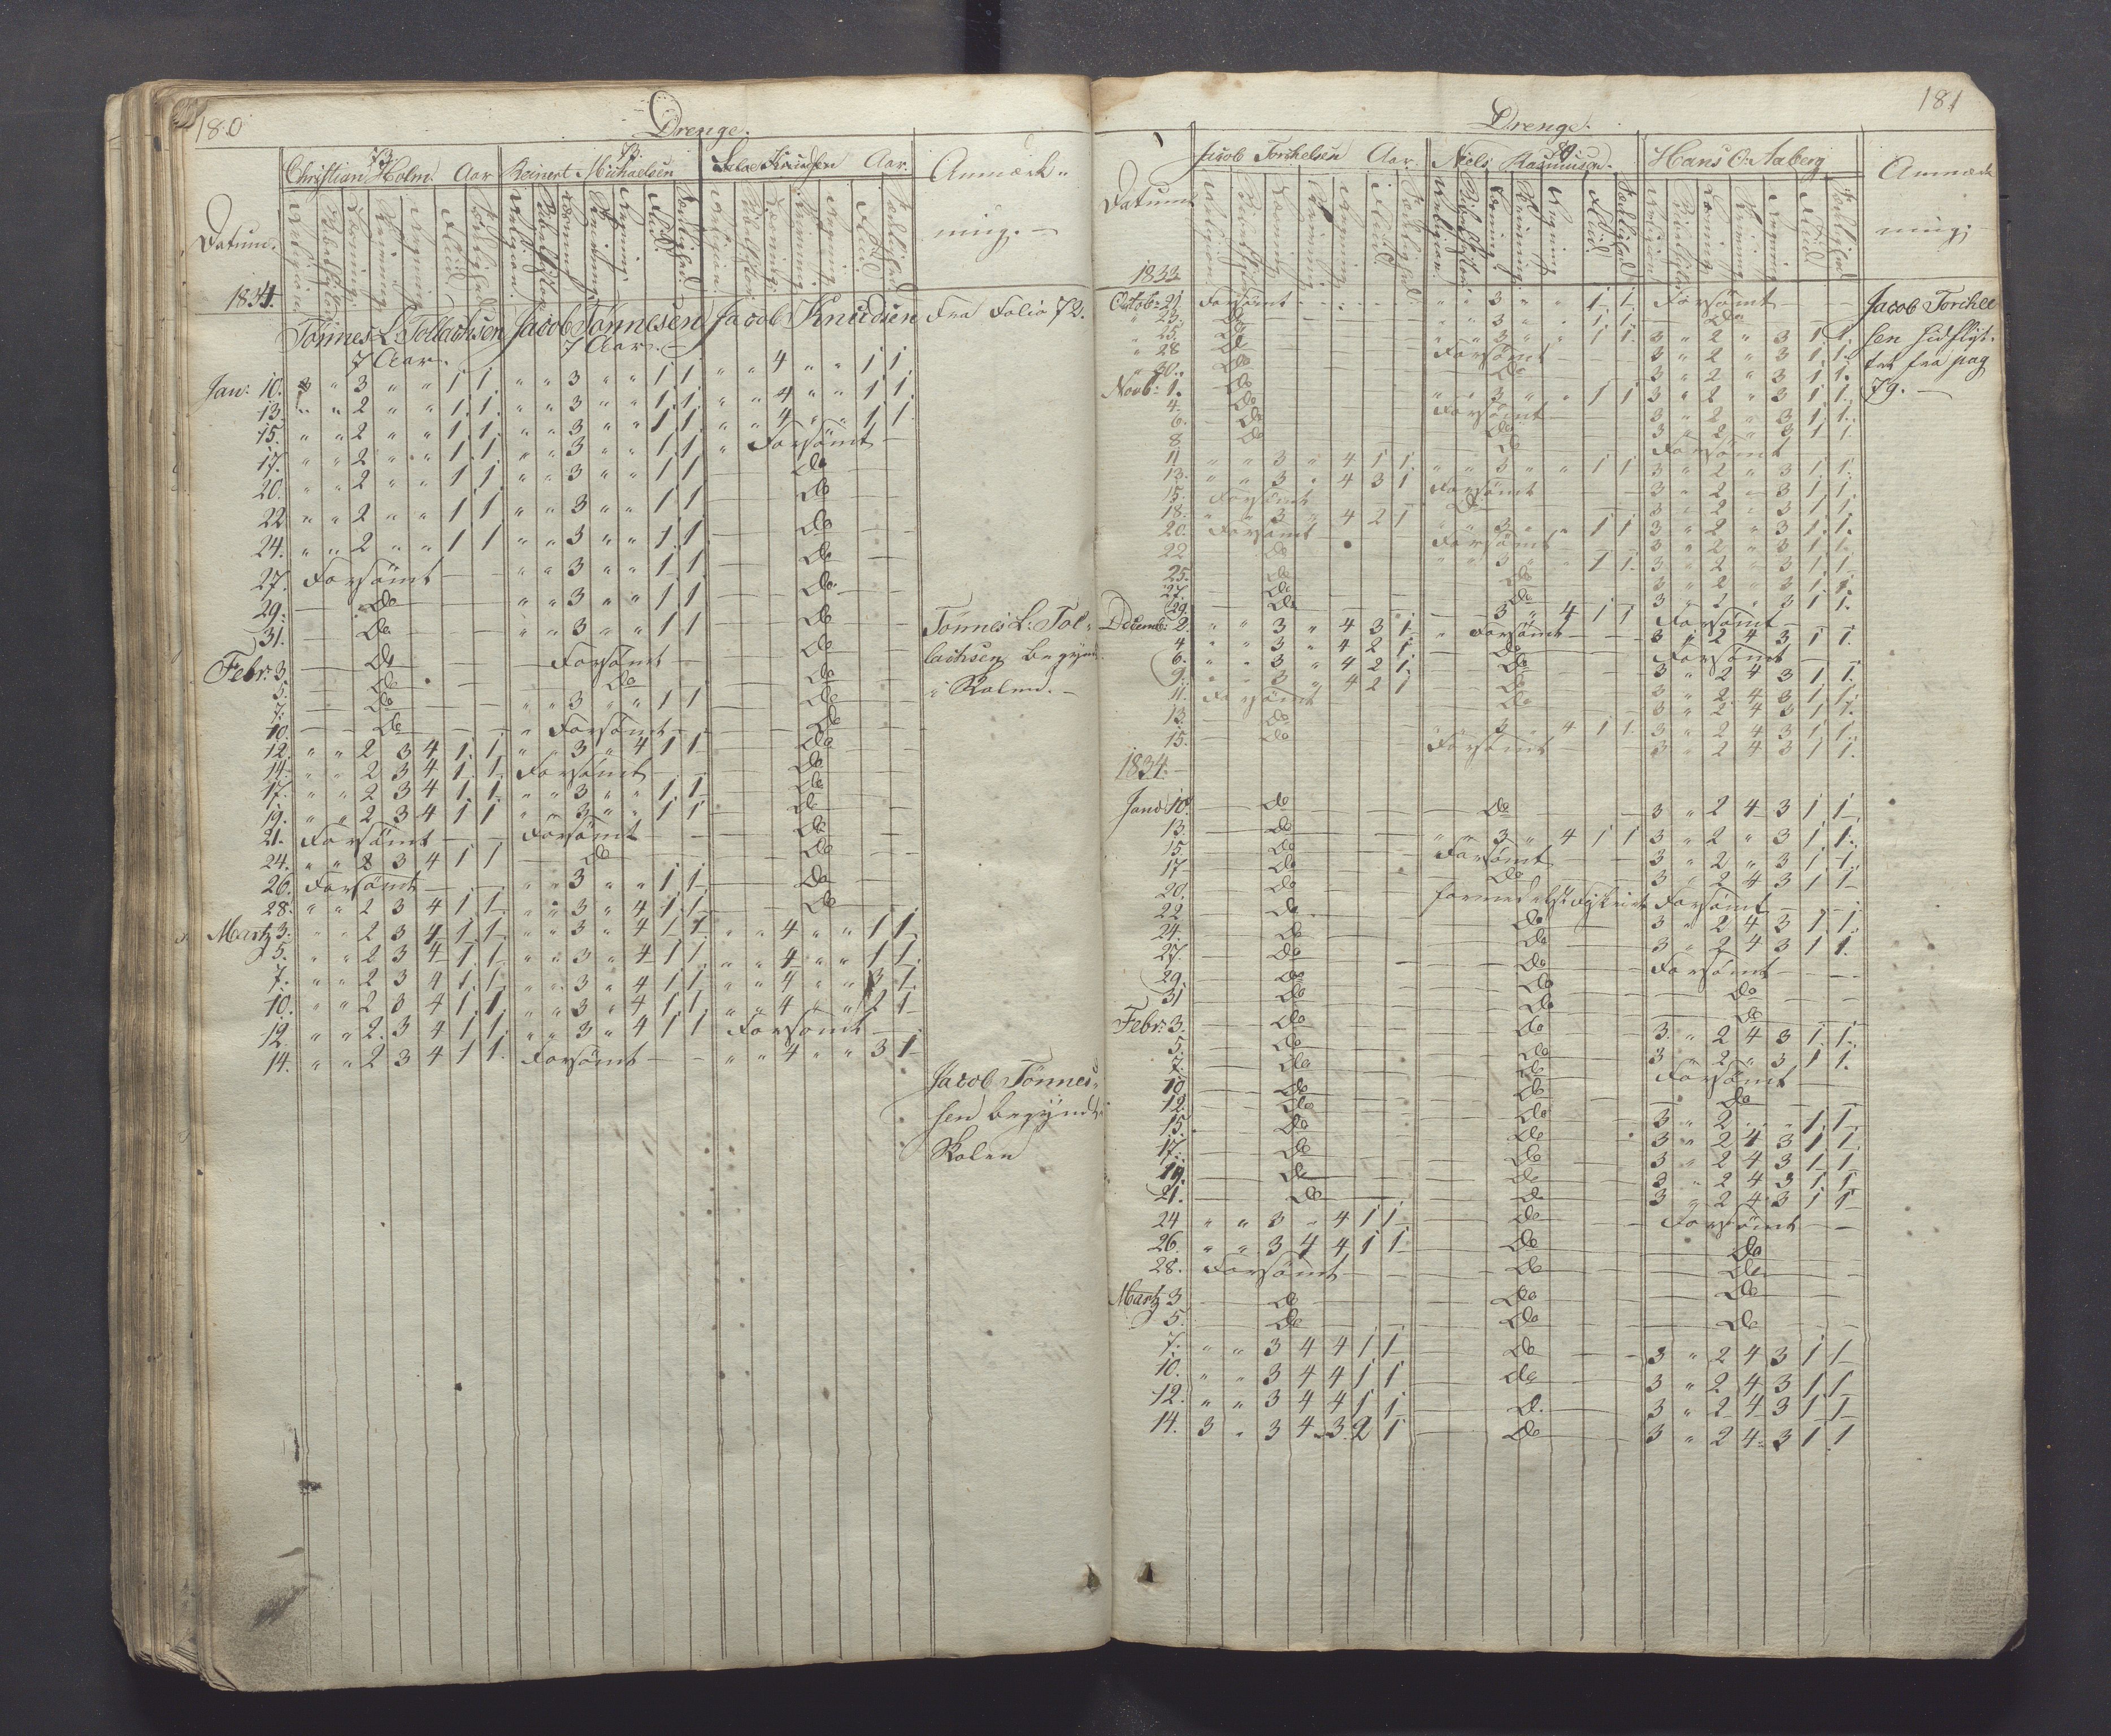 180
Drenge.
73
73
Christian Holm. Aar Reinert Michaelsen Knudsen Aar. Anmærk-
Datum. Religion. Bibelhistorie Læsning. Skrivning. Regning. Fliid. Sædelighed ning. -
1834.
Tönnes L. Tollachsen Jacob Tönnesen Jacob Knudsen Fra Folio 72.
7 Aar. 7 Aar. -
Jan: 10. " " 3 " " 1 1. " " 3 " " 1 1 " " 4 " " 1 1.
13. " " 2 " " 1. 1. " " 3 " " 1. 1. " " 4 " " 1 1.
15. " " 2 " " 1. 1. " " 3 " " 1 1. " " 4 " " 1 1.
17. " " 2 " " 1 1. " " 3 " " 1 1 " Forsömt -
20. " " 2 " " 1 1. " " 3 " " 1 1 do
22 " " 2 " " 1 1 " " 3 " " 1 1 do
24. " " 2 " " 1 1 " " 3 " " 1. 1 do
27. Forsömt " " 3 " " 1 1 do
29. do " " 3 " " 1 1 do
31. do " " 3 " " 1 1 do
Tönnes L: Tol-
Febr: 3 do Forsömt do
lachsen begynd.
5. do do do
i Skolen. -
7. do " " 3 " " 1 1 do
10. do " Forsömt do
12. " " 2 3 4 1. 1 " " 3 " 4 1 1 do
14. " " 2 3 4 1. 1. Forsömt do
17. " " 2 3 4 1. 1. " " 3 " " 1. 1 do
19. " " 2 3 4 1 1 " " 3 " " 1 1 do
21. Forsömt Forsömt do
24. " " 2 3 4 1 1 do do
26. Forsömt " " 3 " " 1. 1 do
28. " " 2 3 4 1. 1 " " 3 " 4 1. 1 do
Martz 3. " " 2 3 4 1. 1. " " 3 " 4 1. 1. " " 4 " " 1 1
5. " " 2 3 4 1. 1 " " 3 " 4 1 1. " " 4 " " 1 1.
7. " " 2 3 4 1. 1 " " 3 " 4 1 1 " " 4 " " 3 1.
10. " " 2 3 4 1. 1 " " 3 " 4 1 1 " " 4 " " 2 1
12. " " 2. 3 4 1 1. " " 3 " 4 1 1 Forsömt
14. " " 2 3 4 1 1. Forsömt " " 4 " " 3 1
Jacob Tönnes-
sen begyndt
Skolen
181
Drenge.
Jacob Torchelsen Aar. Niels Rasmusen. Hans O. Aaberg Anmærk
Datum Religion. Bibelhistorie Læsning Skrivning Regning Fliid. Sædelighed ning.
1833
Octob: 21 Forsömt " " 3 " " 1 1 Forsömt
Jacob Torchel
23. do " " 3 " " 1 1. do
sen hidflyt-
25. do " " 3 " " 1 1. 3 " 2 " 3 1 1.
tet fra pag
28 do Forsömt 3 " 2 " 3 1. 1.
79. -
30. do do 3 " 2 " 3 1 1.
Novb: 1. do " " 3 " " 1 1 3 " 2 " 3 1 1.
4. do Forsömt 3 " 2 " 3 1. 1.
6. do do 3 " 2 " 3 1 1.
8 do do Forsömt
11 " " 3 " 4 1 1. " " 3 " " 1 1 3 " 2 " 3 1. 1.
13. " " 3 " 4 3 1 Forsömt 3 " 2 " 3 1 1.
15. Forsömt do 3 " 2 " 3 1 1.
18. " " 3 " 4 2 1 " " 3 " " 1 1 3 " 2 " 3 1. 1.
20. Forsömt Forsömt 3 " 2 " 3 1 1.
22 do " " 3 " " 1 1. 3 " 2 " 3 1. 1
25. do do 3 " 2 " 3 1 1.
27. do do 3 " 2 " 3 1 1.
29. do " " 3 " 4 1 1 Forsömt
Decemb: 2. " " 3 " 4 3 1 " Forsömt 3 " 2 4 3 1 1.
4 " " 3 " 4 2 1 do Forsömt
6. " " 3 " 4 2 1. do 3 " 2 4 3 1 1.
9. " " 3 " 4 2 1 do 3 " 2 4 3 1 1.
11. Forsömt do 3 " 2 4 3 1 1.
13. do " " 3 " 4 1 1. 3 " 2 4 3 1 1.
15. do Forsömt 3 " 2 4 3 1 1.
1834. -
Janv: 10. do do 3 " 2 4 3 1 1
13. do " " 3 " 4 1 1 3 " 2 " 3 1 1.
15. do Forsömt 3 " 2 " 3 1 1.
17 do do 3 " 2 4 3 1 1
20. do Forsömt
22 do do 3 " 2 4 3 1. 1.
24. do do 3 " 2 4 3 1 1.
27. do do Forsömt
29. do do do
31 do do do
Febr: 3. do do 3. " 2 4 3 1. 1.
5. do do 3 " 2 " 3 1 1.
7. do do Forsömt
10 do do do
12. do do 3 " 2 " " 1. 1.
15. do do 3 " 2 4 3 1 1
17. do do 3 " 2 4 3 1 1
19. do do 3 " 2 4 3 1. 1
21. do do 3 " 2 4 3 1 1
24 " " 3 " 4 1 1 do Forsömt
26. " " 3 4 4 1 1 do do
28. Forsömt do do
Martz 3 do do do
5. do do do
7. " " 3 4 4 1 1 do 3 " 2 4 3 1 1
10. " " 3 4 4 1 1 do 3 " 2 4 3 1. 1
12. " " 3 4 4 1 1 do 3 " 2 4 3 1 1
14. 3 " 3 4 3. 2 1 do 3 " 2 4 3 1 1